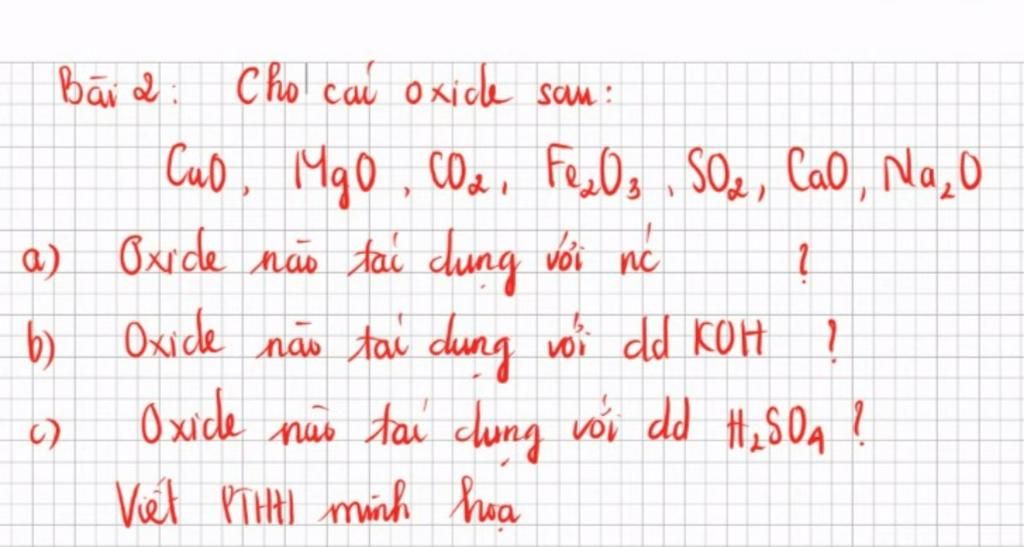 Bài 2: Cho các oxide sau:
CuO, MgO, CO₂, Fe₂O₃, SO₂, CaO, Na₂O
a) Oxide nào tác dụng với nc ?
b) Oxide nào tác dụng với dd KOH ?
c) Oxide nào tác dụng với dd H₂SO₄ ?
Viết PTHH minh hoạ